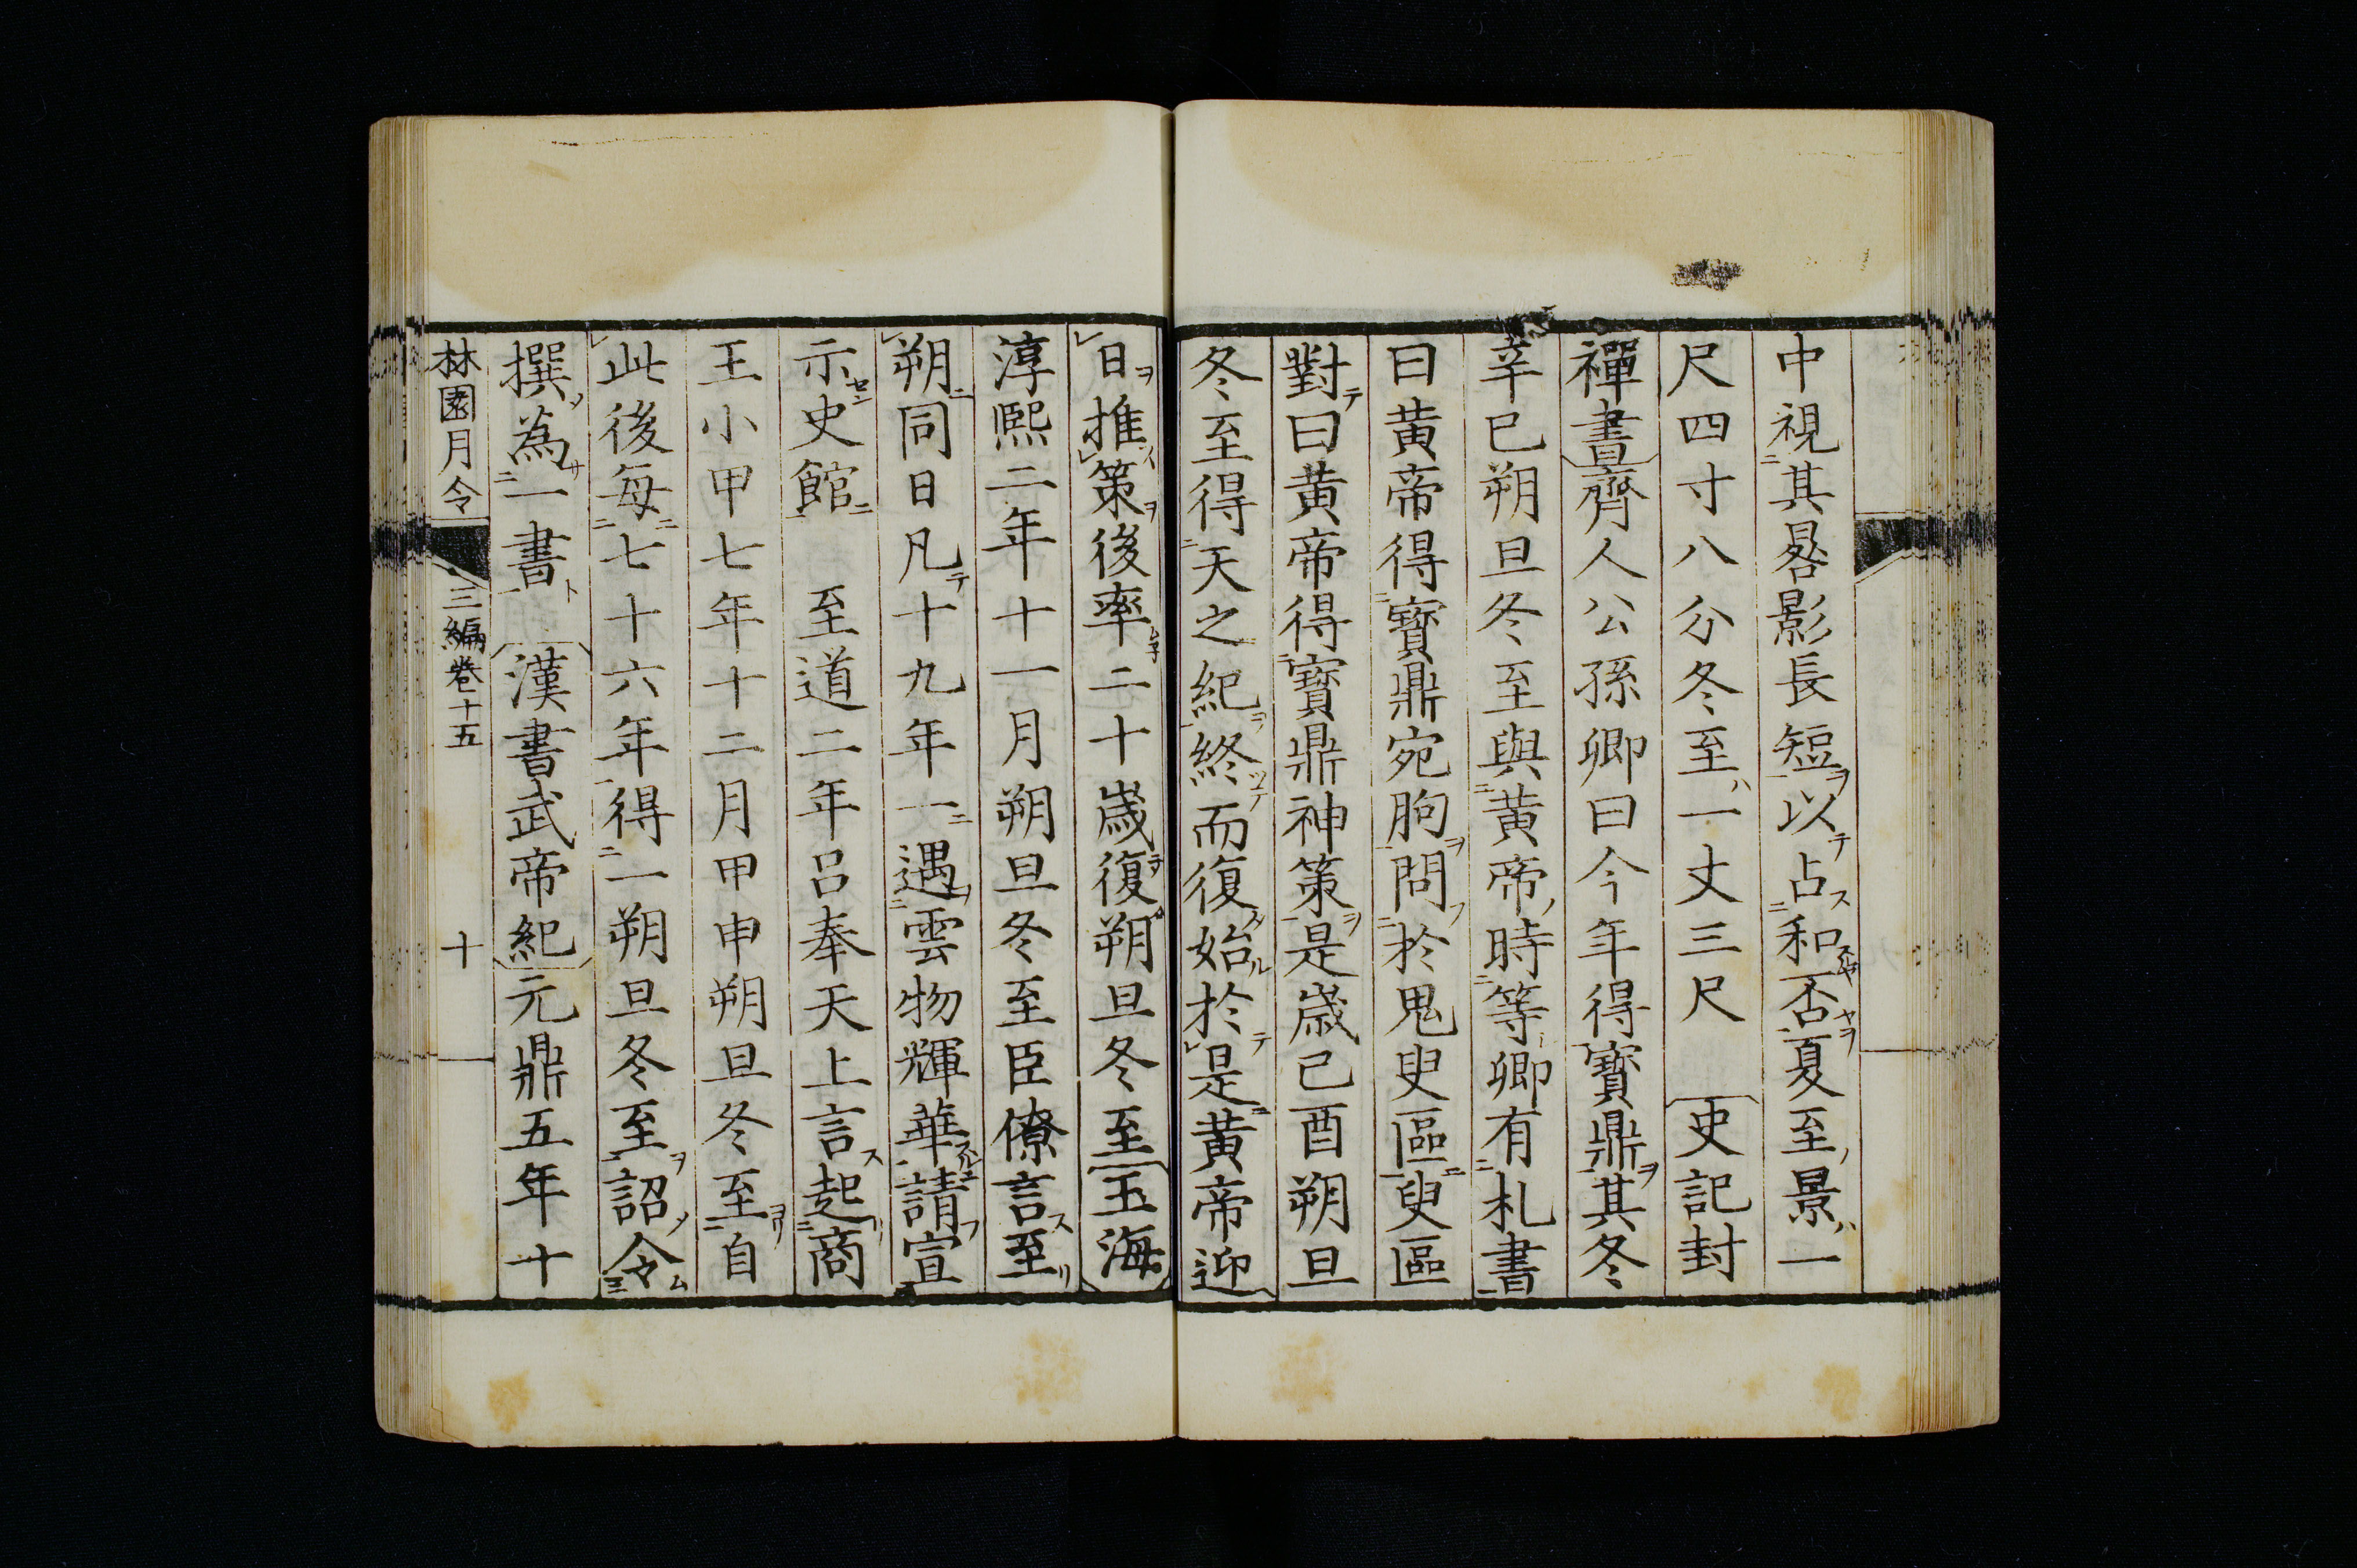 中視其晷影長短以占和否夏至景一
尺四寸八分冬至一丈三尺　史記封
禪書齊人公孫卿曰今年得寶鼎其冬
辛巳朔旦冬至與黃帝時等卿有札書
曰黃帝得寶鼎宛朐問於鬼臾區臾區
對曰黃帝得寶鼎神策是歲己酉朔旦
冬至得天之紀終而復始於是黃帝迎
日推策後率二十歲復朔旦冬至玉海
淳熙二年十一月朔旦冬至臣僚言至
朔同日凡十九年一遇雲物輝華請宣
示史館　至道二年呂奉天上言起商
王小甲七年十二月甲申朔旦冬至自
此後每七十六年得一朔旦冬至詔令
撰為一書　漢書武帝紀元鼎五年十
林園月令　三編卷十五　十